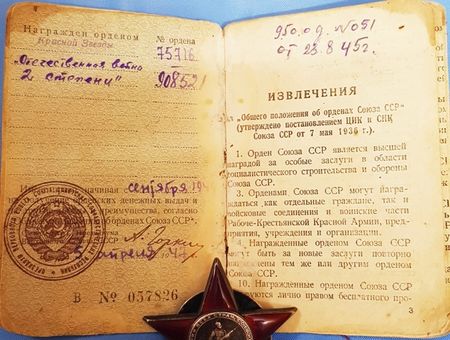 Награжден орденом
Красной Звезды
№ ордена
75716
"Отечественная война
2 степени"
908521
начиная
сентября 19
денежных выдач и
преимущества, согласно
орденах Союза ССР".
А. Горкин
5 апреля 47
В № 057826
950.од. №051
от 28.8.45г.
ИЗВЛЕЧЕНИЯ
„Общего положения об орденах Союза ССР"
(утверждено постановлением ЦИК и СНК
Союза ССР от 7 мая 1936 г.).
1. Орден Союза ССР является высшей
наградой за особые заслуги в области
социалистического строительства и обороны
Союза ССР.
3. Орденами Союза ССР могут награ-
ждаться как отдельные граждане, так и
войсковые соединения и воинские части
Рабоче-Крестьянской Красной Армии, пред-
приятия, учреждения и организации.
4. Награжденные орденом Союза ССР
могут быть за новые заслуги повторно
награждены тем же или другим орденом
Союза ССР.
10. Награжденные орденом Союза ССР
пользуются лично правом бесплатного про-
3